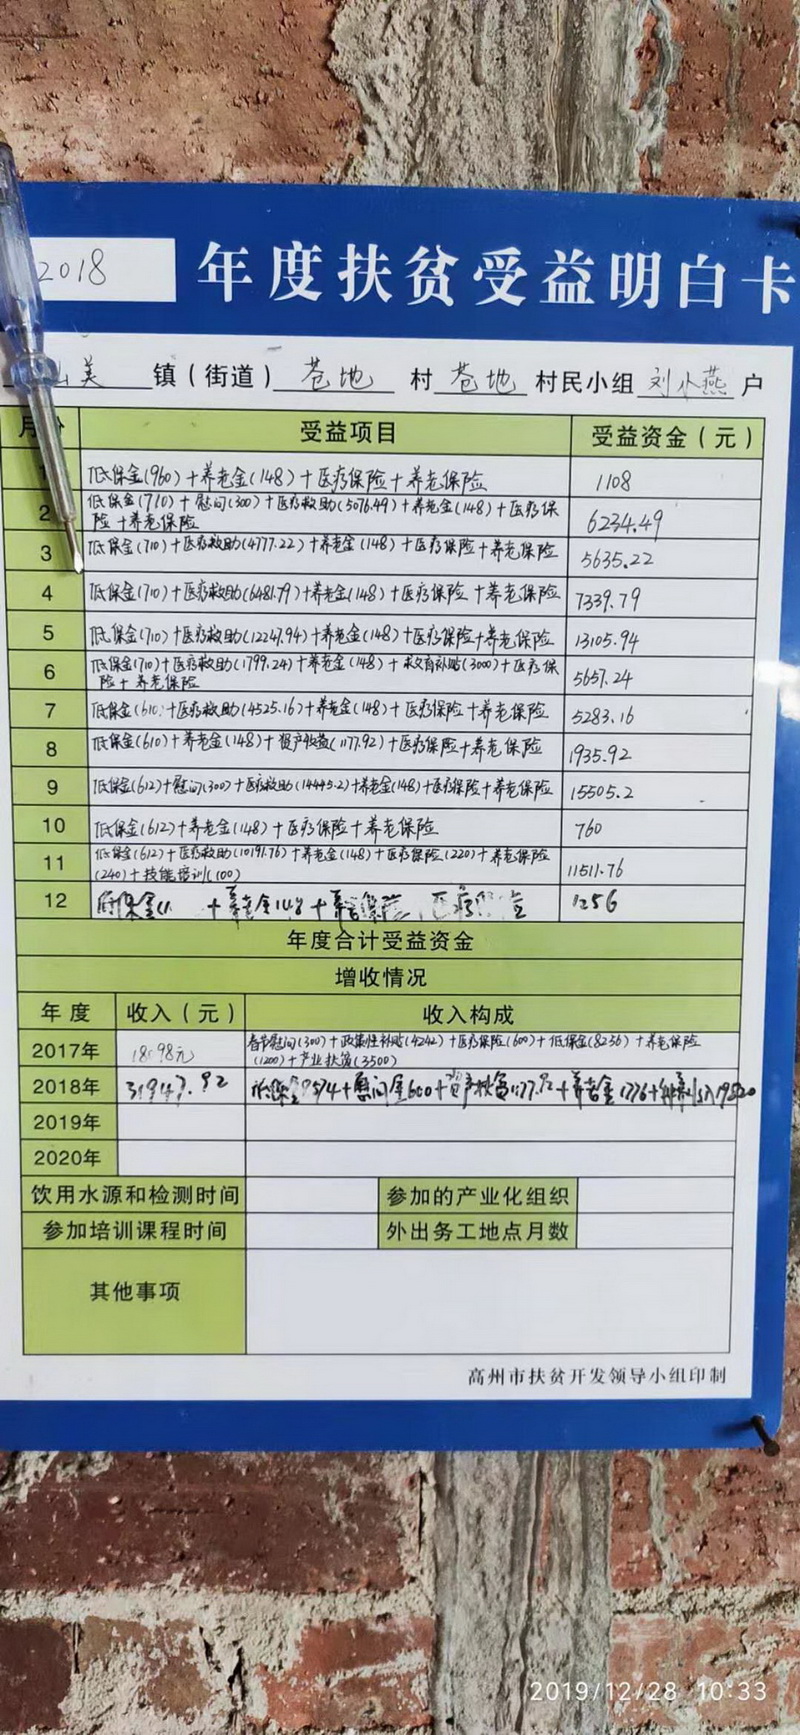 2018 年度扶贫受益明白卡
山美 镇（街道） 苍地 村 苍地 村民小组 刘小燕 户
月份 受益项目 受益资金（元）
1 低保金(960)+养老金(148)+医疗保险+养老保险 1108
2 低保金(710)+慰问(300)+医疗救助(5076.49)+养老金(148)+医疗保
险+养老保险 6234.49
3 低保金(710)+医疗救助(4777.22)+养老金(148)+医疗保险+养老保险 5635.22
4 低保金(710)+医疗救助(6481.79)+养老金(148)+医疗保险+养老保险 7339.79
5 低保金(710)+医疗救助(12247.94)+养老金(148)+医疗保险+养老保险 13105.94
6 低保金(710)+医疗救助(1799.24)+养老金(148)+教育补贴(3000)+医疗保
险+养老保险 5657.24
7 低保金(610)+医疗救助(4525.16)+养老金(148)+医疗保险+养老保险 5283.16
8 低保金(610)+养老金(148)+资产收益(1177.92)+医疗保险+养老保险 1935.92
9 低保金(612)+慰问(300)+医疗救助(14445.2)+养老金(148)+医疗保险+养老保险 15505.2
10 低保金(612)+养老金(148)+医疗保险+养老保险 760
11 低保金(612)+医疗救助(10191.76)+养老金(148)+医疗保险(220)+养老保险
(240)+技能培训(100) 11511.76
12 低保金 +养老金148+养老保险 医疗保险 1256
年度合计受益资金
增收情况
年度 收入（元） 收入构成
2017年 18098元 春节慰问(300)+政策性补贴(4242)+医疗保险(600)+低保金(8256)+养老保险
(1200)+产业扶贫(3500)
2018年 31947.92 低保金 +慰问金600+资产扶贫1177.92+养老金1776+
2019年
2020年
饮用水源和检测时间 参加的产业化组织
参加培训课程时间 外出务工地点月数
其他事项
高州市扶贫开发领导小组印制
2019/12/28 10:33